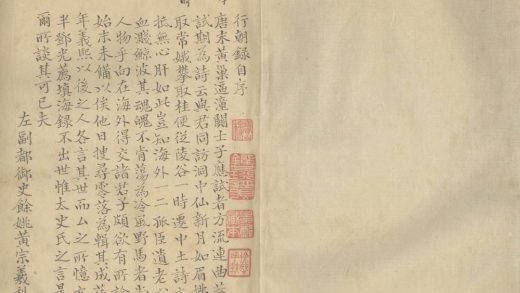 行朝錄自序
唐末黃巢逼潼關士子應試者方流連曲
試期為詩云與君同訪洞中仙新月如眉拂
取常娥攀取桂便從陵谷一時遷中土詩文
抵無心肝如此豈知海外一二孤臣遺老
血濺鯨波其魂魄不肯蕩為冷風野馬者尚
人物乎向在海外得交諸君子頗欲有所論
始末未備以俟他日搜尋零落為輯其成
年義熙以後之人各言其世而厶之所憶亦
半鄧光薦填海錄不出世惟太史氏之言是
爾所談其可已夫
左副都御史餘姚黃宗羲